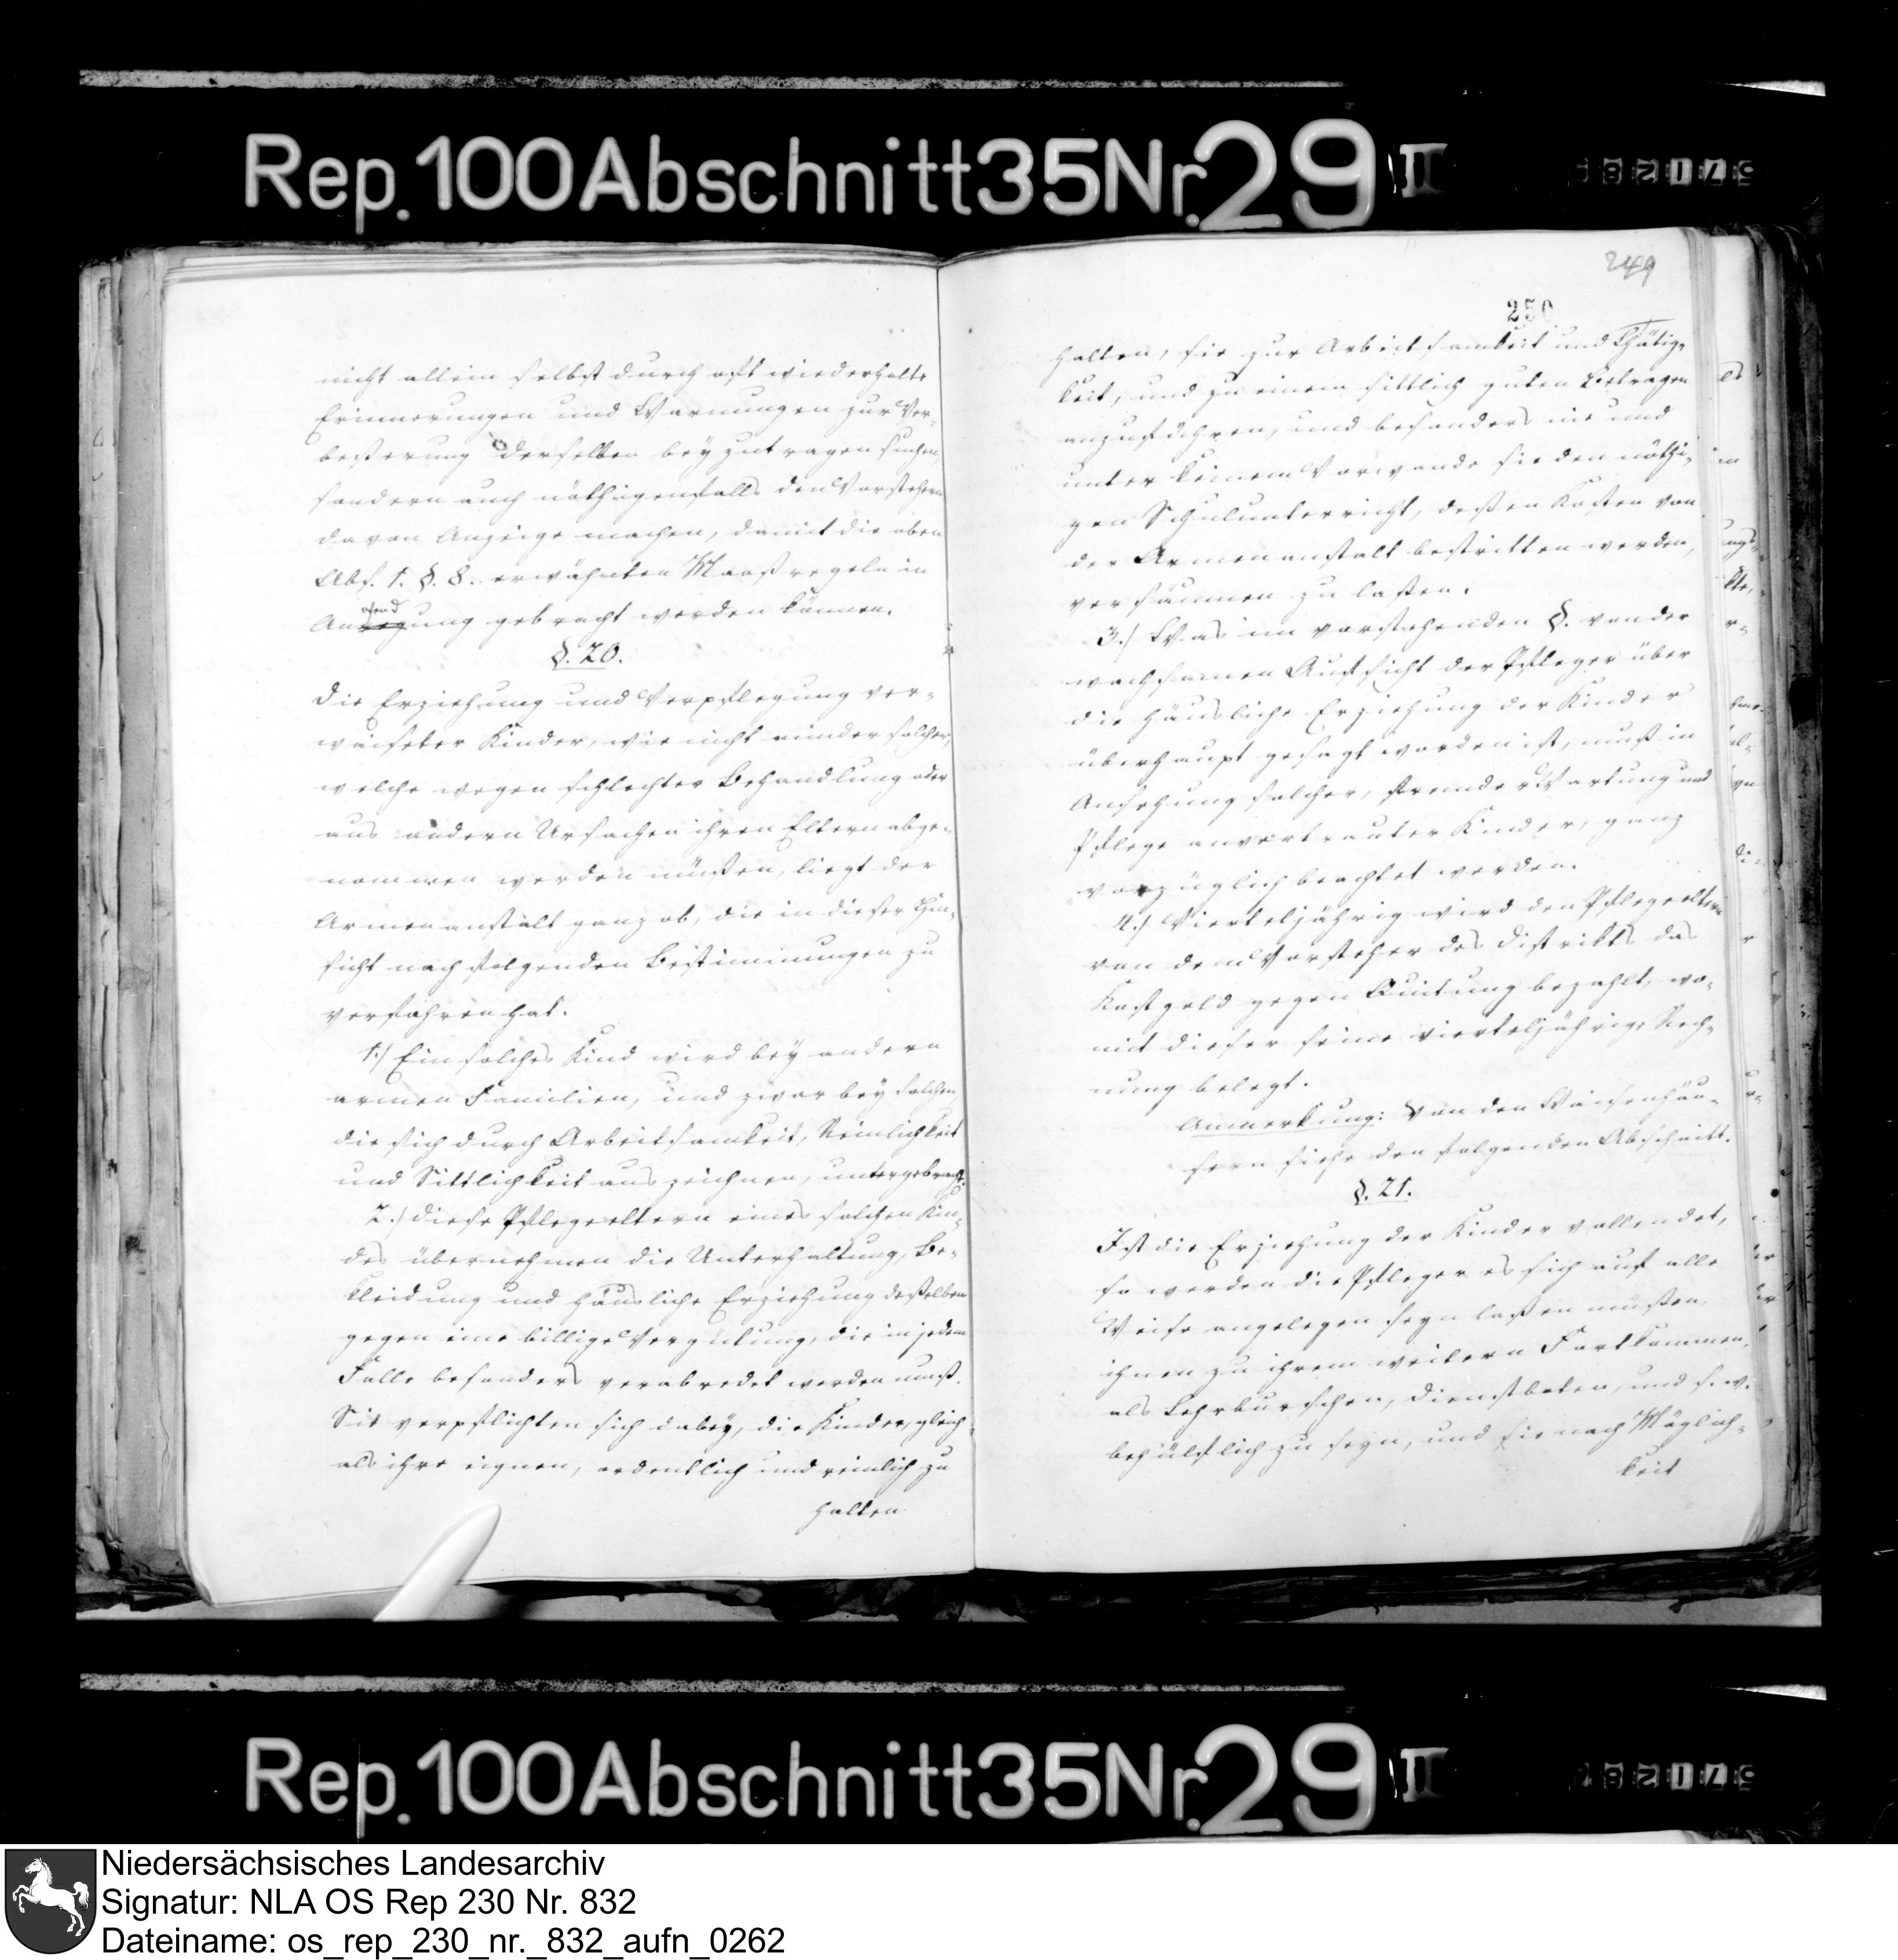 Rep. 100 Abschnitt 35 Nr. 29 II
57128
nicht allein selbst durch oft wiederholte
Erinnerungen und Warnungen zur Ver-
beßerung derselben beyzutragen suchen,
sondern auch nöthigenfalls den Vorstehern
davon Anzeige machen, damit die oben
Abs. 1. §. 8. erwähnten Maasregeln in
gebracht werden können.
§. 20.
Die Erziehung und Verpflegung ver-
waiseter Kinder, wie nicht minder solcher,
welche wegen schlechter Behandlung oder
aus andern Ursachen ihren Eltern abge-
nommen werden müßen, liegt der
Armenanstalt ganz ob, die in dieser Hin-
sicht nach folgenden Bestimmungen zu
verfahren hat.
1.) Ein solches Kind wird bey andern
armen Familien, und zwar bey solchen,
die sich durch Arbeitsamkeit, Reinlichkeit
und Sittlichkeit auszeichnen, untergebracht.
2.) Diese Pflegeeltern eines solchen Kin-
des übernehmen die Unterhaltung, Be-
kleidung und häusliche Erziehung deßelben
gegen eine billige Vergütung, die in jedem
Falle besonders verabredet werden muß.
Sie verpflichten sich dabey, die Kinder, gleich
als ihre eignen, ordentlich und reinlich zu
halten
249
250
halten, sie zur Arbeitsamkeit und Thätig-
keit, und zu einem sittlich guten Betragen
anzuführen, und besonders nie und
unter keinem Vorwande sie den nöthi-
gen Schulunterricht, deßen Kosten von
der Armenanstalt bestritten werden,
versäumen zu laßen.
3.) Was im vorstehenden §. von der
wachsamen Aufsicht der Pfleger über
die häusliche Erziehung der Kinder
überhaupt gesagt worden ist, muß in
Ansehung solcher, fremder Wartung und
Pflege anvertrauter Kinder, ganz
vorzüglich beachtet werden.
4.) Vierteljährig wird den Pflegeeltern
von dem Vorsteher des Distrikts das
Kostgeld gegen Quitung bezahlt, wo-
mit dieser seine vierteljährige Rech-
nung belegt.
Anmerkung: Von den Waisenhäu-
sern siehe den folgenden Abschnitt.
§. 21.
Ist die Erziehung der Kinder vollendet,
so werden die Pfleger es sich auf alle
Weise angelegen seyn laßen müßen,
ihnen zu ihrem weitern Fortkommen,
als Lehrburschen, Dienstboten, und s. w.
behülflich zu seyn, und sie nach Möglich-
keit
Rep. 100 Abschnitt 35 Nr. 29 II
57128
Niedersächsisches Landesarchiv
Signatur: NLA OS Rep 230 Nr. 832
Dateiname: os_rep_230_nr._832_aufn_0262